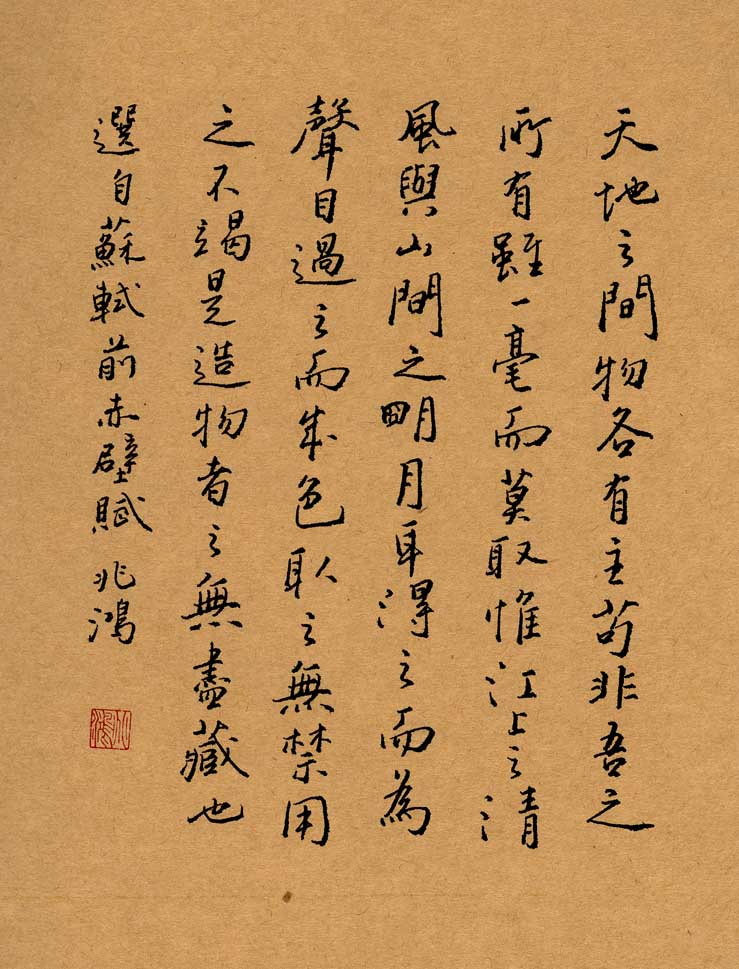 天地之間物各有主苟非吾之
所有雖一毫而莫取惟江上之清
風與山間之明月耳得之而為
聲目遇之而成色取之無禁用
之不竭是造物者之無盡藏也
選自蘇軾前赤壁賦 兆鴻